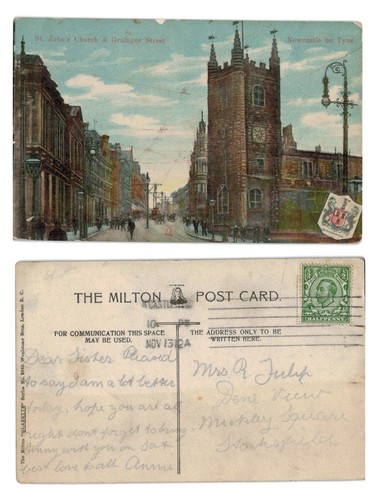 St. John's Church & Grainger Street
Newcastle on Tyne
THE MILTON POST CARD.
FOR COMMUNICATION THIS SPACE
MAY BE USED.
THE ADDRESS ONLY TO BE
WRITTEN HERE.
HALFPENNY
NOV 13 12
The Milton "GLAZETTE" Series No. Woolstone Bros. London E. C.
Dear Sister
to say I am a lot better
today, hope you are all
right dont forget
wishing you on Sat
best love to all Annie
Mrs R. Tulip
Dene View
Mickley Square
Stocksfield